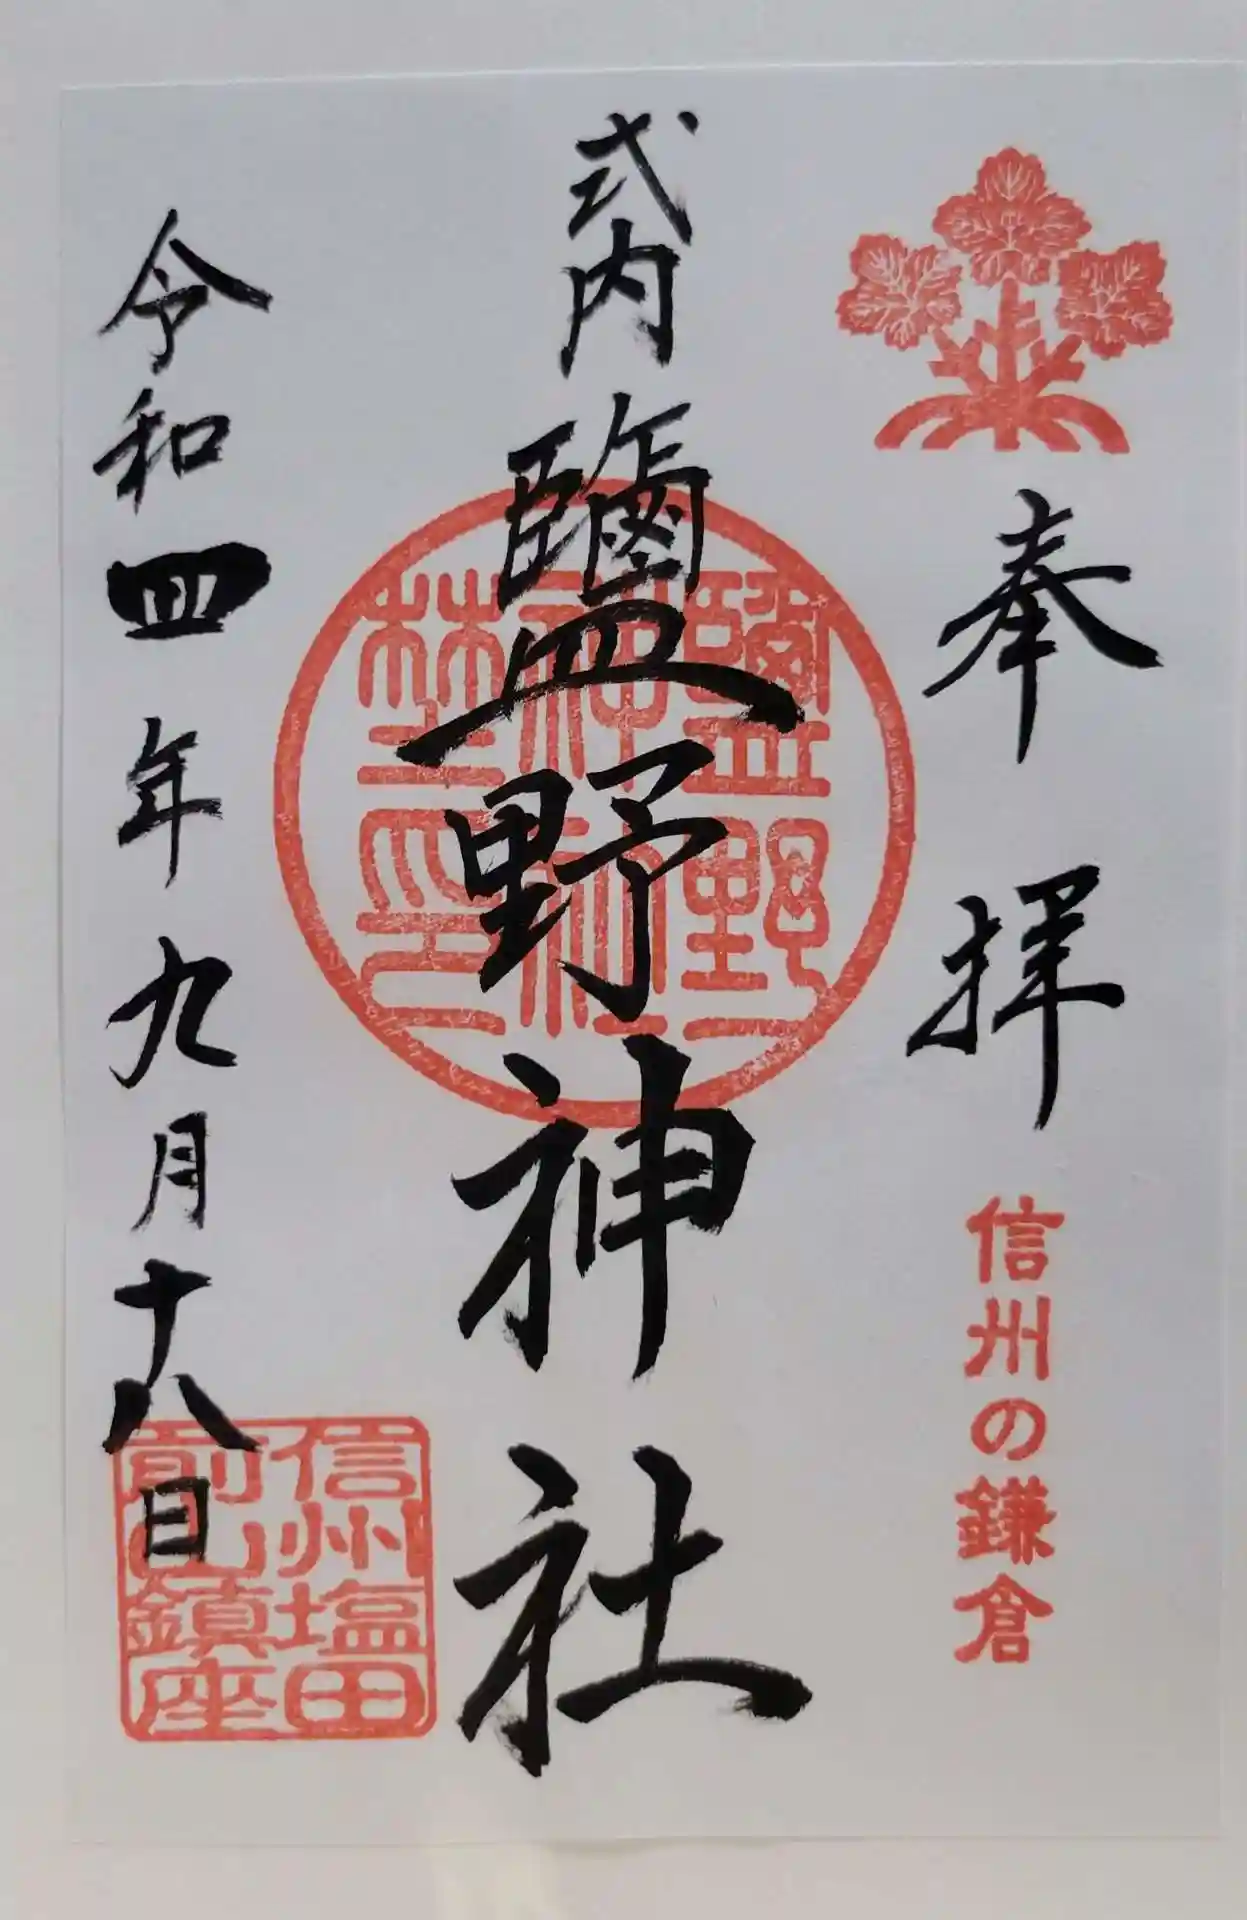 奉拝
信州の鎌倉
式内鹽野神社
鹽野
神社
之印
令和四年九月十八日
信州塩田
前山鎮座